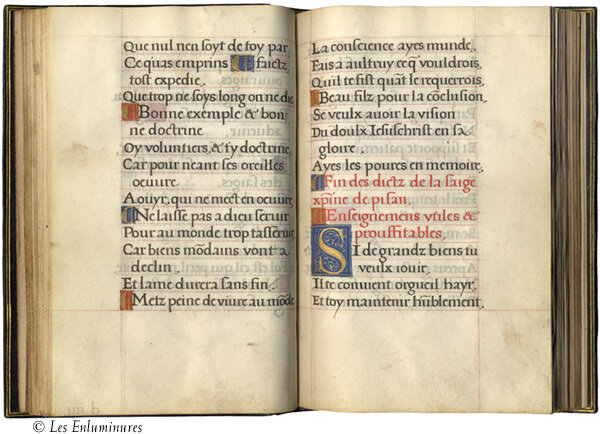 Que nul nen soyt de toy par
Ce quas emprins faictz
tost expedie.
Que trop ne soys long on ne die
Bonne exemple & bon
ne doctrine
Oy voluntiers, & ty doctrine
Car pour neant ses oreilles
oeuure
A ouyr, qui ne mect en oeuure
Ne laisse pas a dieu seruir
Pour au monde trop tasseruir
Car biens mōdains vont a
declin.
Et lame durera sans fin.
Metz peine de viure au mōde
La conscience ayes munde.
Fais a aultruy ce q̄ vouldrois,
Quil te fist quāt le requerrois.
Beau filz pour la cōclusion
Se veulx auoir la vision
Du doulx Iesuschrist en sa
gloire.
Ayes les poures en memoire.
Fin des dictz de la saige
xp̄ine de pisan.
Enseignemens vtiles &
prouffitables.
Si de grandz biens tu
veulx iouir.
Il te conuient orgueil hayr.
Et toy maintenir hūblement.
© Les Enluminures